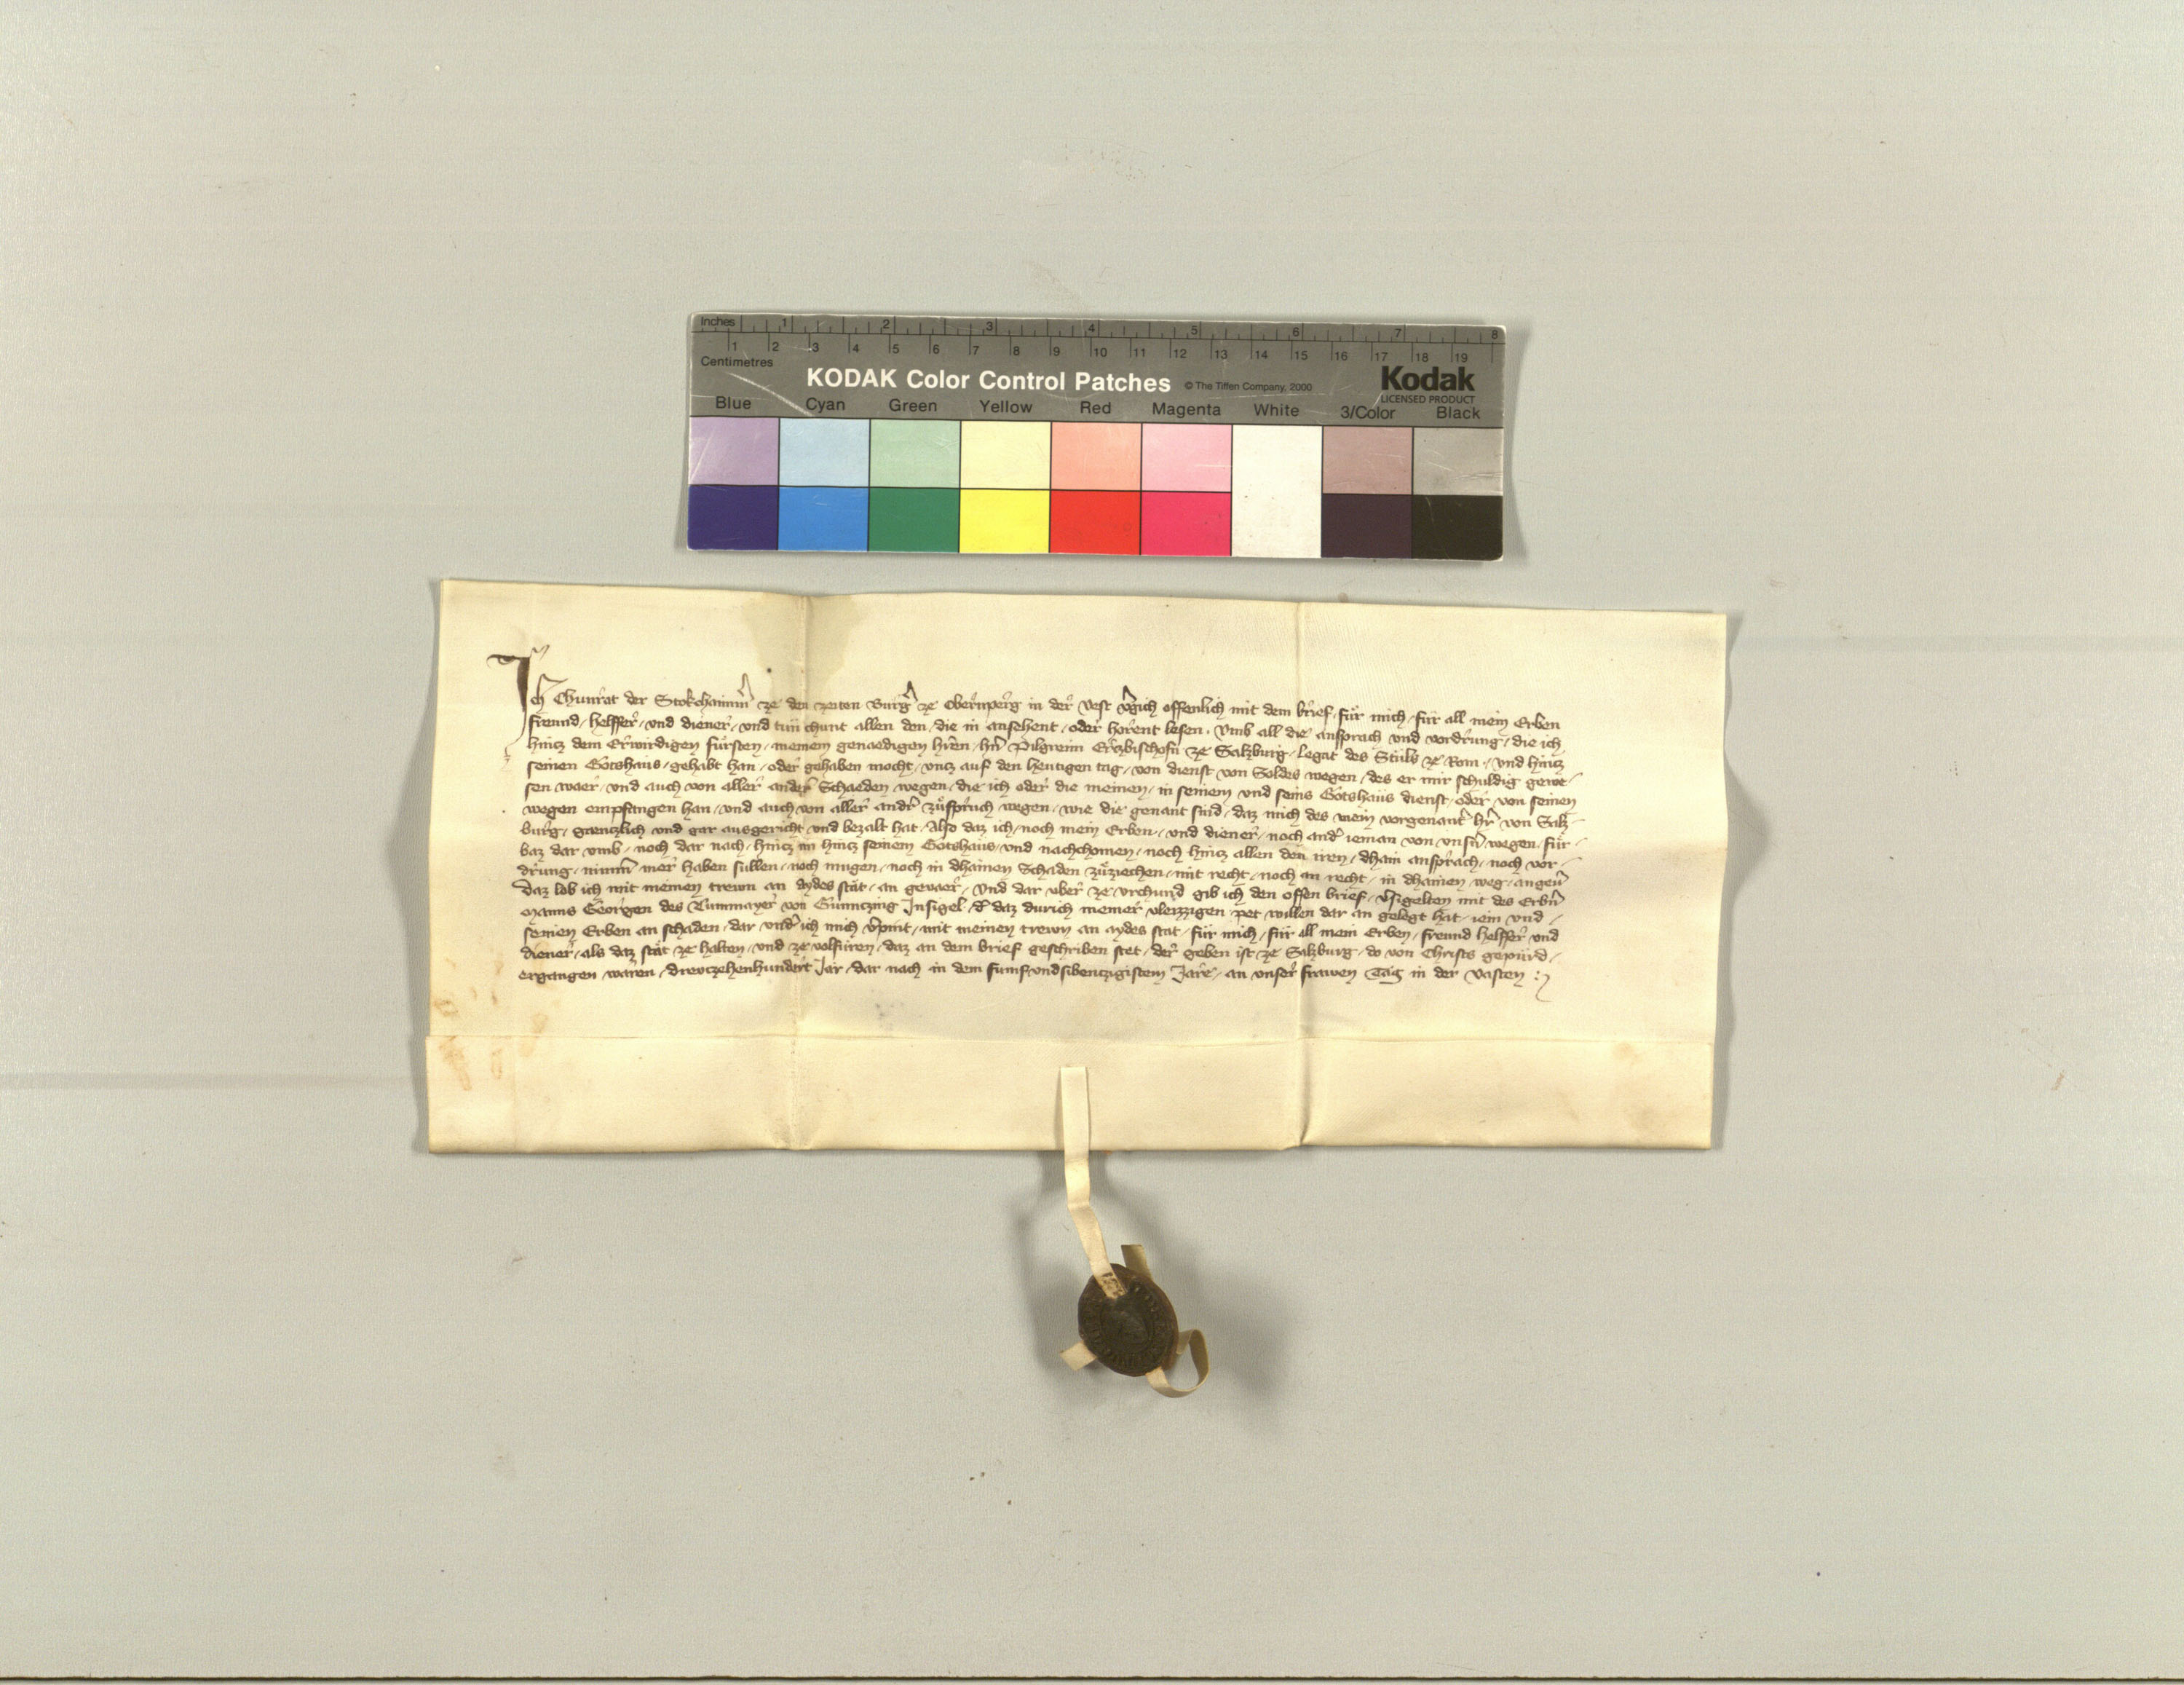 Inches 1 2 3 4 5 6 7 8
Centimetres 1 2 3 4 5 6 7 8 9 10 11 12 13 14 15 16 17 18 19
KODAK Color Control Patches © The Tiffen Company, 2000 Kodak
LICENSED PRODUCT
Blue Cyan Green Yellow Red Magenta White 3/Color Black
Ich Chunrat der Stokchaimer ze den zeiten Burgr ze Obernperg in der vest vergich offenlich mit dem brief, für mich, für all mein Erben
freund, helffer, und diener, und tun chunt allen den, die in ansehent, oder horent lesen, Umb all die ansprach und vordrung, die ich
hincz dem Erwirdigen fürsten, meinem genaedigen hren, hr Pilgreim Erczbischofn ze Salzburg, legat des Stuls ze Rom, und hincz
seinen Gotshaus, gehabt han, oder gehaben mocht, uncz auf den heutigen tag, von dienst von Soldes wegen, des er mir schuldig gewe-
sen waer, und auch von aller ander Schaeden, wegen, die ich oder die meinen, in seinem und seins Gotshaus dienst, oder von seinen
wegen empfangen han, und auch von aller andr zuspruch wegen, wie die genant sind, daz mich des mein vorgenantr hr von Salz-
burg, gaenczlich und gar ausgericht und bezalt hat, Also daz ich, noch mein Erben, und diener, noch andr ieman von unsn wegen, für-
baz dar umb, noch dar nach, hincz im hincz seinem Gotshaus, und nachchomen, noch hincz allen den iren, dhain ansprach, noch vor-
drung, nimm mer haben sullen, noch mugen, noch in dhainen Schaden zuziechen, mit recht, noch an recht, in dhainen weg, angeu
Daz lob ich mit meinen trewn an aydes stat, an gevaer, Und dar uber ze urchund gib ich den offen brief, vsigelten mit des Erbn
manns Georgen des Tummayer von Gunczing Insigel, d daz durich meiner vleizzigen pet willen dar an gelegt hat, iem und
seinen Erben an schaden, dar undr ich mich vpint, mit meinen trewn an aydes stat, für mich, für all mein Erben, freund helffer und
diener, als daz stät ze halten, und ze volfuren, daz an dem brief geschriben stet, der geben ist ze Salzburg, do von Christs gepurd,
ergangen waren, drewczehenhundert Jar, dar nach in dem fumfundsibenczgistem Jare, an unser frawen Tag in der vasten